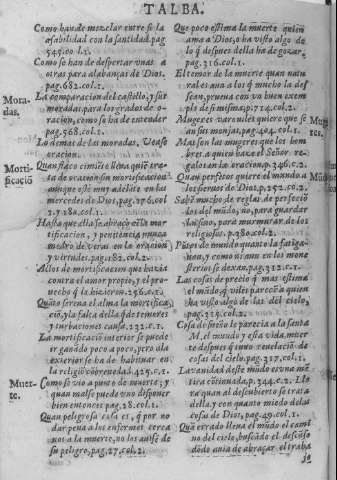 TALBA.
Como han de mezclar entre si la
afabilidad con la santidad. pag
545. col. 1.
Como se han de despertar vnas a
otras para alabanças de Dios.
pag. 682. col. 1.
Mora-
das.
La comparacion del castillo, y sus
moradas para los grados de o-
racion, como se ha de entender
pag. 568. col. 1.
Lo demas de las moradas. Vease
oracion.
Mortificació
Quan flaco cimiēto lleua quiē
ta de oracion sin mortificacion
aunque esté muy adelāte en las
mercedes de Dios, pag. 276. col.
2. y 280. col. 1.
Hasta que allà mor-
tificacion, y penitencia, nunca
medro de veras en la oracion
y virtudes. pag. 182. col. 2.
Allos de mortificacion que hazia
contra el amor propio, y el pro-
uecho q̄ la hizieron. 256. c. 2.
Quāto serena el alma la mortifica
ció, y la falta della q̄ de temores
y turbaciones causa. 232. c. 1.
La mortificació interior se puede
ir ganādo poco a poco, pero a la
exterior se ha de habituar en
la religió 425. c. 1.
Muer-
te.
Como se vio a punto de muerte; y
quan mal se puede vno disponer
bien entonces pag. 28. col. 1.
Quan peligrosa cosa es, q̄ por no
dar pena a los enfermos cerca
nos a la muerte, no los auisē de
su peligro, pag. 27. col. 2.
Que poco estima la muerte quien
ama a Dios, o ha visto algo de
lo q̄ despues della ha de gozar,
pag. 316. col. 1.
El temor de la muerte quan natu
ral es aun a los q̄ mucho la des
sean, prueua con vn buen exem
plo de si misma, p. 714. col. 2.
Mugeres varoniles quiere que se
an sus monjas, pag. 404. col. 1.
Mas son las mugeres que los hom
bres a quien haze el Señor re-
galos en la oracion, p. 346. c. 2.
Quan perfetos quiere el mundo a
los sieruos de Dios, p. 252. co. 2.
Sabē mucho de reglas de perfeció
los del mūdo, no, para guardar
las suyos, para murmurar de los
religiosos. p. 980. col. 2.
Pūtos de mundo quanto la fatiga-
n, y como ni aun en los mone
sterios se dexan, pag. 312. c. 1.
Las cosas de precio q̄ mas estima
el mūdo q̄ viles parecē a quien
ha visto algo de las del cielo,
pag. 315. col. 2.
Cosa de sueño le parecia a la santa
M. el mundo y esta vida, mien-
te despues q̄ tuuo reuelació de
cosas del cielo. pag. 317, col. 1.
La vanidad deste mūdo es vna mē
tira cōtinuada, p. 344. c. 2. Lle
ra que al descubierto se trata
della, y con quanto miedo delas
cosas de Dios, pag. 49. col. 1.
Quā errado lleua el mūdo el cami
no del cielo, buscādo el descāso
dōde auia de abraçar el traba
jo